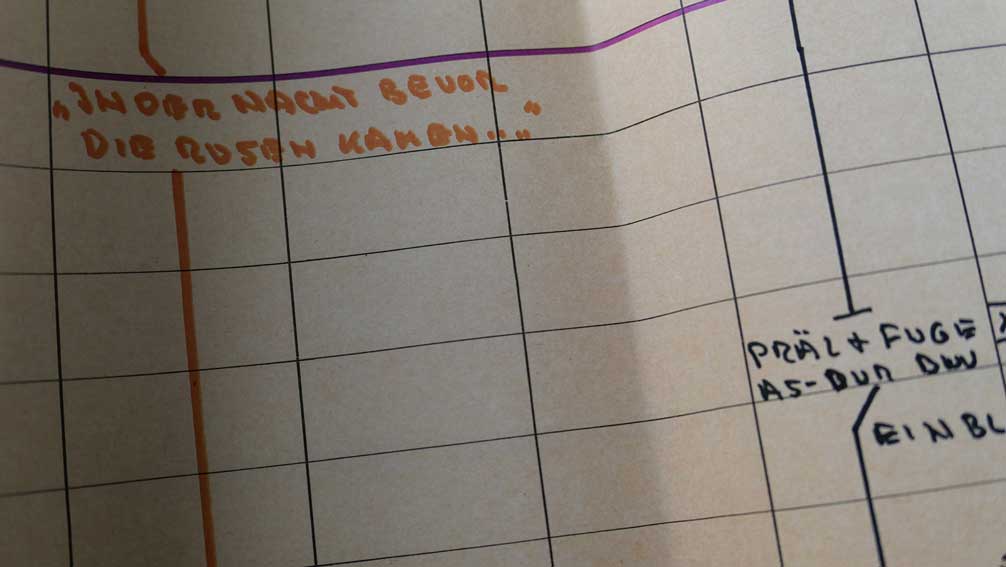 „IN DER NACHT BEVOR
DIE ROSEN KAMEN..."
PRÄL + FUGE
AS-DUR DWV
EINBL